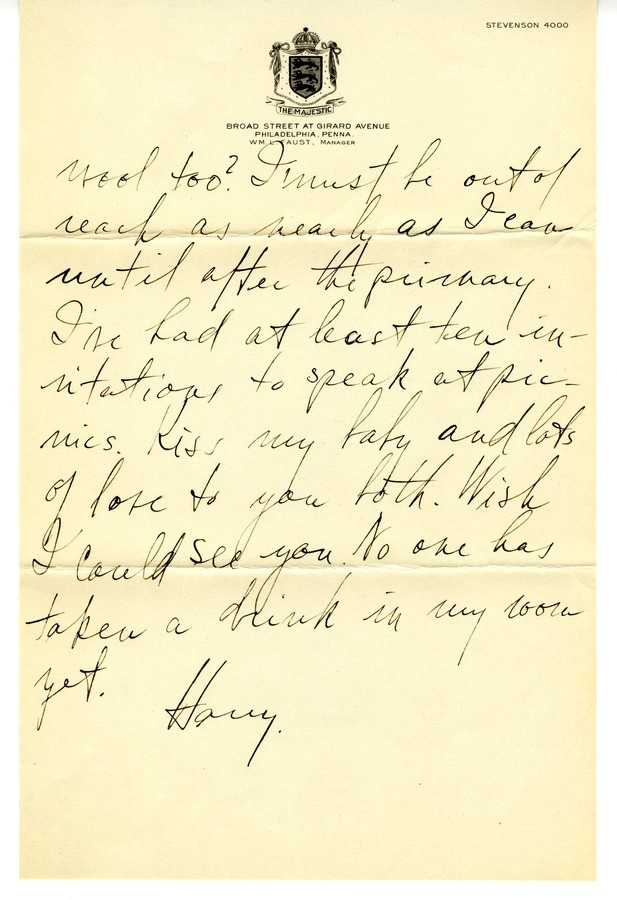 STEVENSON 4000
THE MAJESTIC
BROAD STREET AT GIRARD AVENUE
PHILADELPHIA, PENNA.
WM. L. FAUST, MANAGER
wool too? I must be out of
reach as nearly as I can
until after the primary.
I've had at least ten in-
vitations to speak at pic-
nics. Kiss my baby and lots
of love to you both. Wish
I could see you. No one has
taken a drink in my room
yet.
Harry.